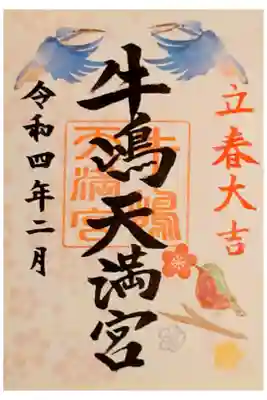 立春大吉
牛嶋天満宮
牛嶋天満宮
令和四年二月